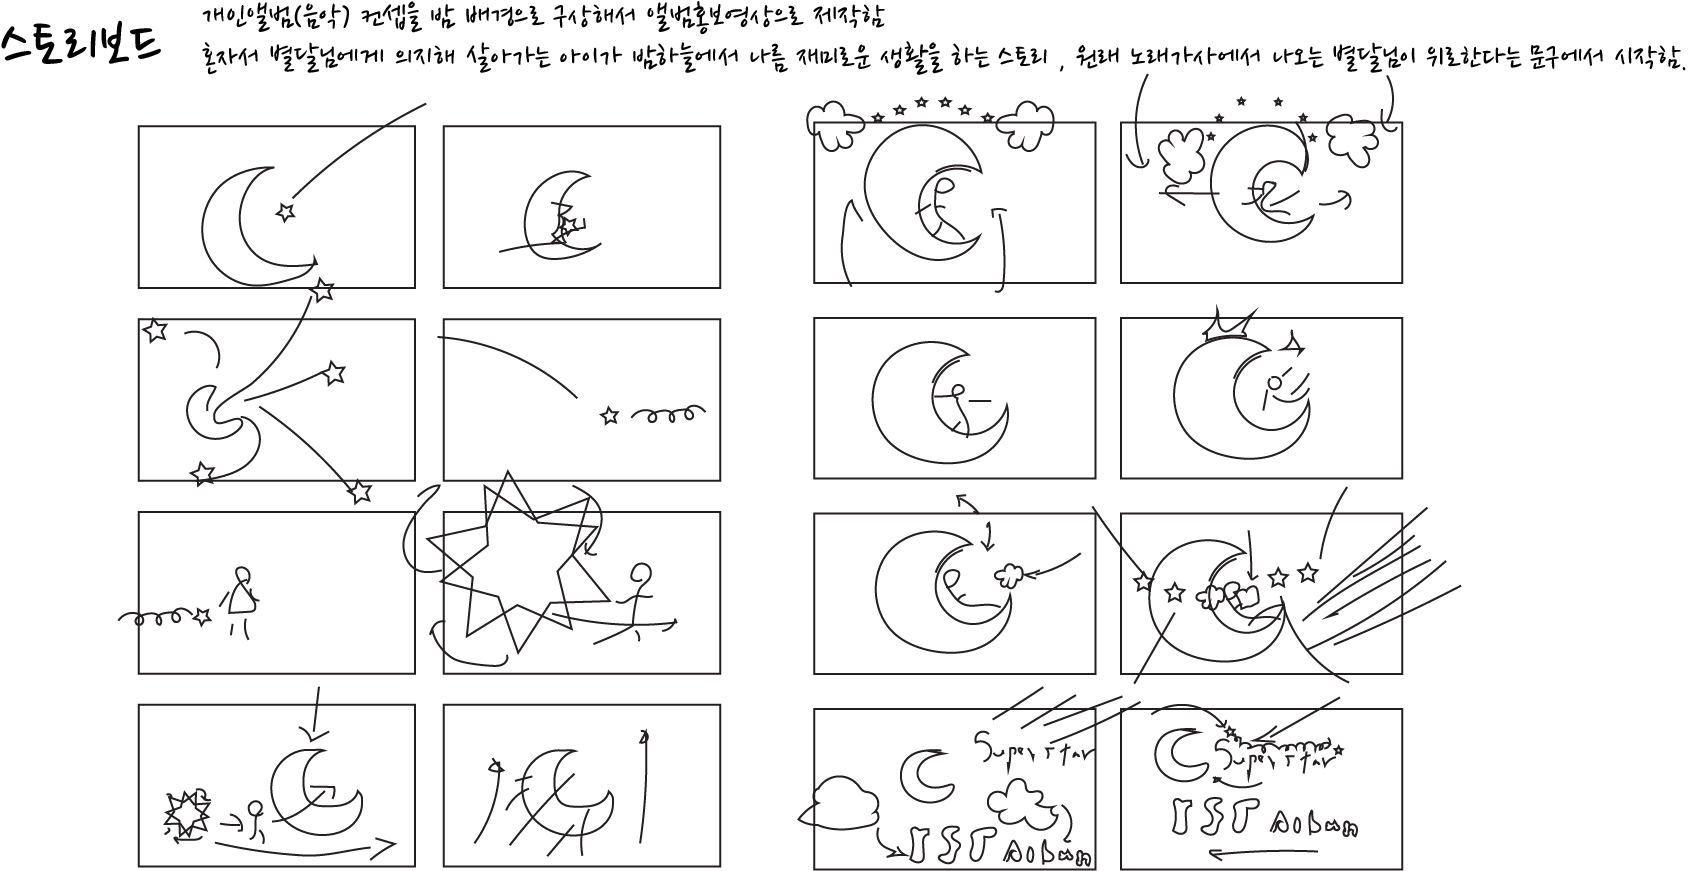 스토리보드
개인앨범(음악) 컨셉을 밤 배경으로 구상해서 앨범홍보영상으로 제작함
혼자서 별달님에게 의지해 살아가는 아이가 밤하늘에서 나름 재미로운 생활을 하는 스토리 , 원래 노래가사에서 나오는 별달님이 위로한다는 문구에서 시작함.
Super Star
1ST Album
Super Star
1ST Album